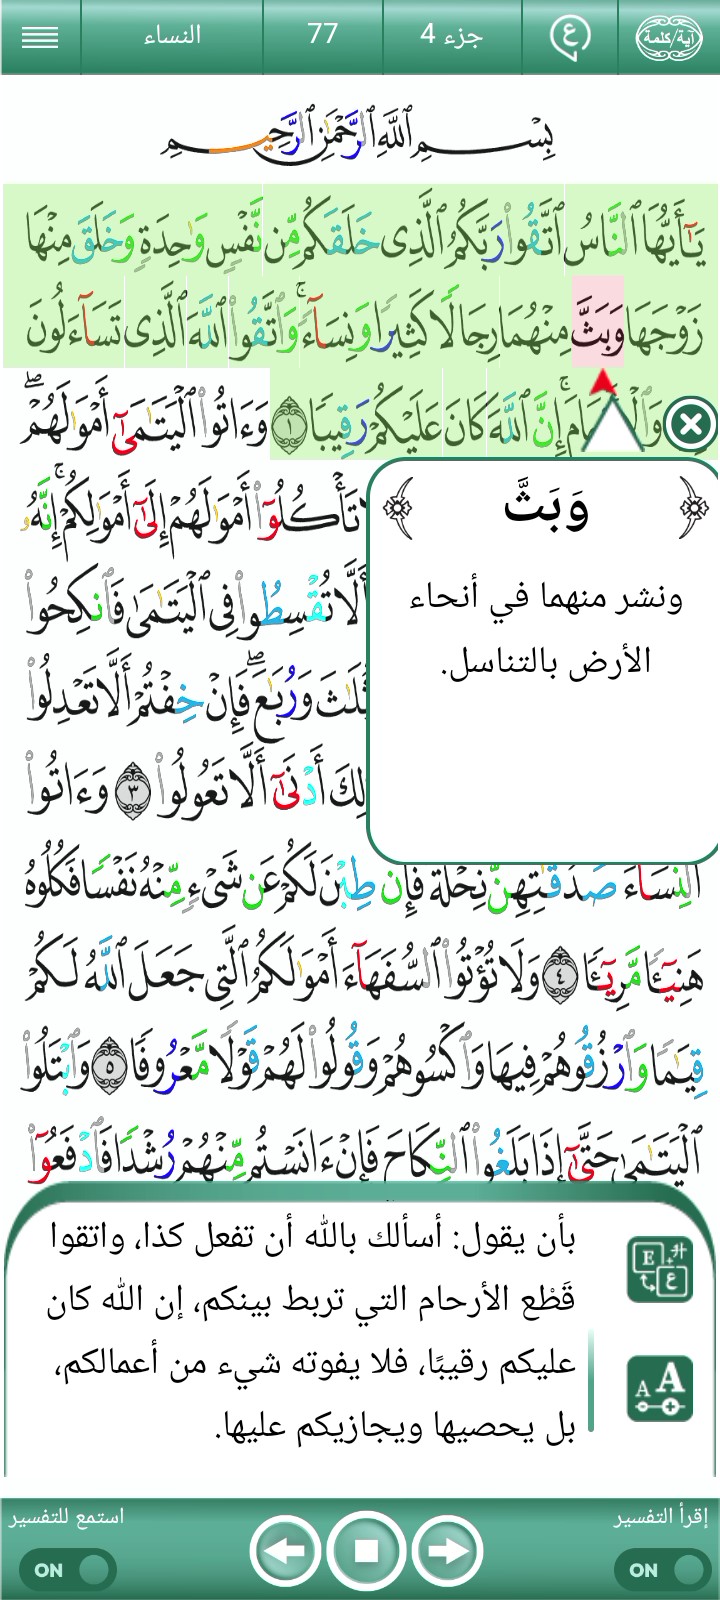 آية/كلمة
ع
جزء 4
77
النساء
بِسْمِ ٱللَّهِ ٱلرَّحْمَٰنِ ٱلرَّحِيمِ
يَٰٓأَيُّهَا ٱلنَّاسُ ٱتَّقُوا۟ رَبَّكُمُ ٱلَّذِى خَلَقَكُم مِّن نَّفْسٍ وَٰحِدَةٍ وَخَلَقَ مِنْهَا
زَوْجَهَا وَبَثَّ مِنْهُمَا رِجَالًا كَثِيرًا وَنِسَآءً ۚ وَٱتَّقُوا۟ ٱللَّهَ ٱلَّذِى تَسَآءَلُونَ
إِنَّ ٱللَّهَ كَانَ عَلَيْكُمْ رَقِيبًا ١ وَءَاتُوا۟ ٱلْيَتَٰمَىٰٓ أَمْوَٰلَهُمْ ۖ
تَأْكُلُوٓا۟ أَمْوَٰلَهُمْ إِلَىٰٓ أَمْوَٰلِكُمْ ۚ إِنَّهُۥ
أَلَّا تُقْسِطُوا۟ فِى ٱلْيَتَٰمَىٰ فَٱنكِحُوا۟
وَرُبَٰعَ ۖ فَإِنْ خِفْتُمْ أَلَّا تَعْدِلُوا۟
أَدْنَىٰٓ أَلَّا تَعُولُوا۟ ٣ وَءَاتُوا۟
ٱلنِّسَآءَ صَدُقَٰتِهِنَّ نِحْلَةً ۚ فَإِن طِبْنَ لَكُمْ عَن شَىْءٍ مِّنْهُ نَفْسًا فَكُلُوهُ
هَنِيٓـًٔا مَّرِيٓـًٔا ٤ وَلَا تُؤْتُوا۟ ٱلسُّفَهَآءَ أَمْوَٰلَكُمُ ٱلَّتِى جَعَلَ ٱللَّهُ لَكُمْ
قِيَٰمًا وَٱرْزُقُوهُمْ فِيهَا وَٱكْسُوهُمْ وَقُولُوا۟ لَهُمْ قَوْلًا مَّعْرُوفًا ٥ وَٱبْتَلُوا۟
ٱلْيَتَٰمَىٰ حَتَّىٰٓ إِذَا بَلَغُوا۟ ٱلنِّكَاحَ فَإِنْ ءَانَسْتُم مِّنْهُمْ رُشْدًا فَٱدْفَعُوٓا۟
وَبَثَّ
ونشر منهما في أنحاء
الأرض بالتناسل.
بأن يقول: أسألك بالله أن تفعل كذا، واتقوا
قَطْع الأرحام التي تربط بينكم، إن الله كان
عليكم رقيبًا، فلا يفوته شيء من أعمالكم،
بل يحصيها ويجازيكم عليها.
E
ع
A A
إقرأ التفسير
استمع للتفسير
ON
ON